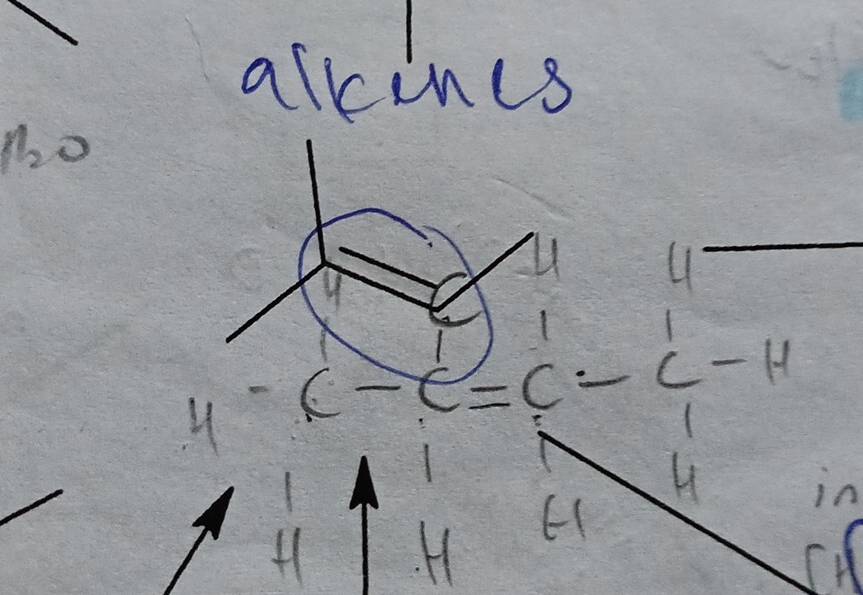 alkenes
H H
C
H
H - C - C = C - C - H
H H H H
in